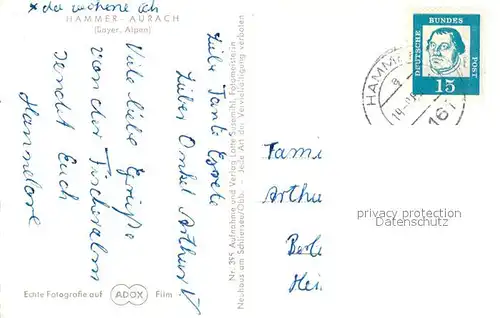 x da wohne ich
HAMMER - AURACH
(Bayer. Alpen)
Liebe Tante Gerete
Lieber Onkel Arthur!
Viele liebe Grüße
von der Fischeralm
sendet Euch
Hannelore
Echte Fotografie auf ADOX Film
Nr. 395 Aufnahme und Verlag Lotte Susemihl, Fotomeisterin
Neuhaus am Schliersee/Obb. - Jede Art der Vervielfältigung verboten
DEUTSCHE BUNDES POST
15
HAMM
161
Fami
Arthu
Berl
Hei
privacy protection
Datenschutz